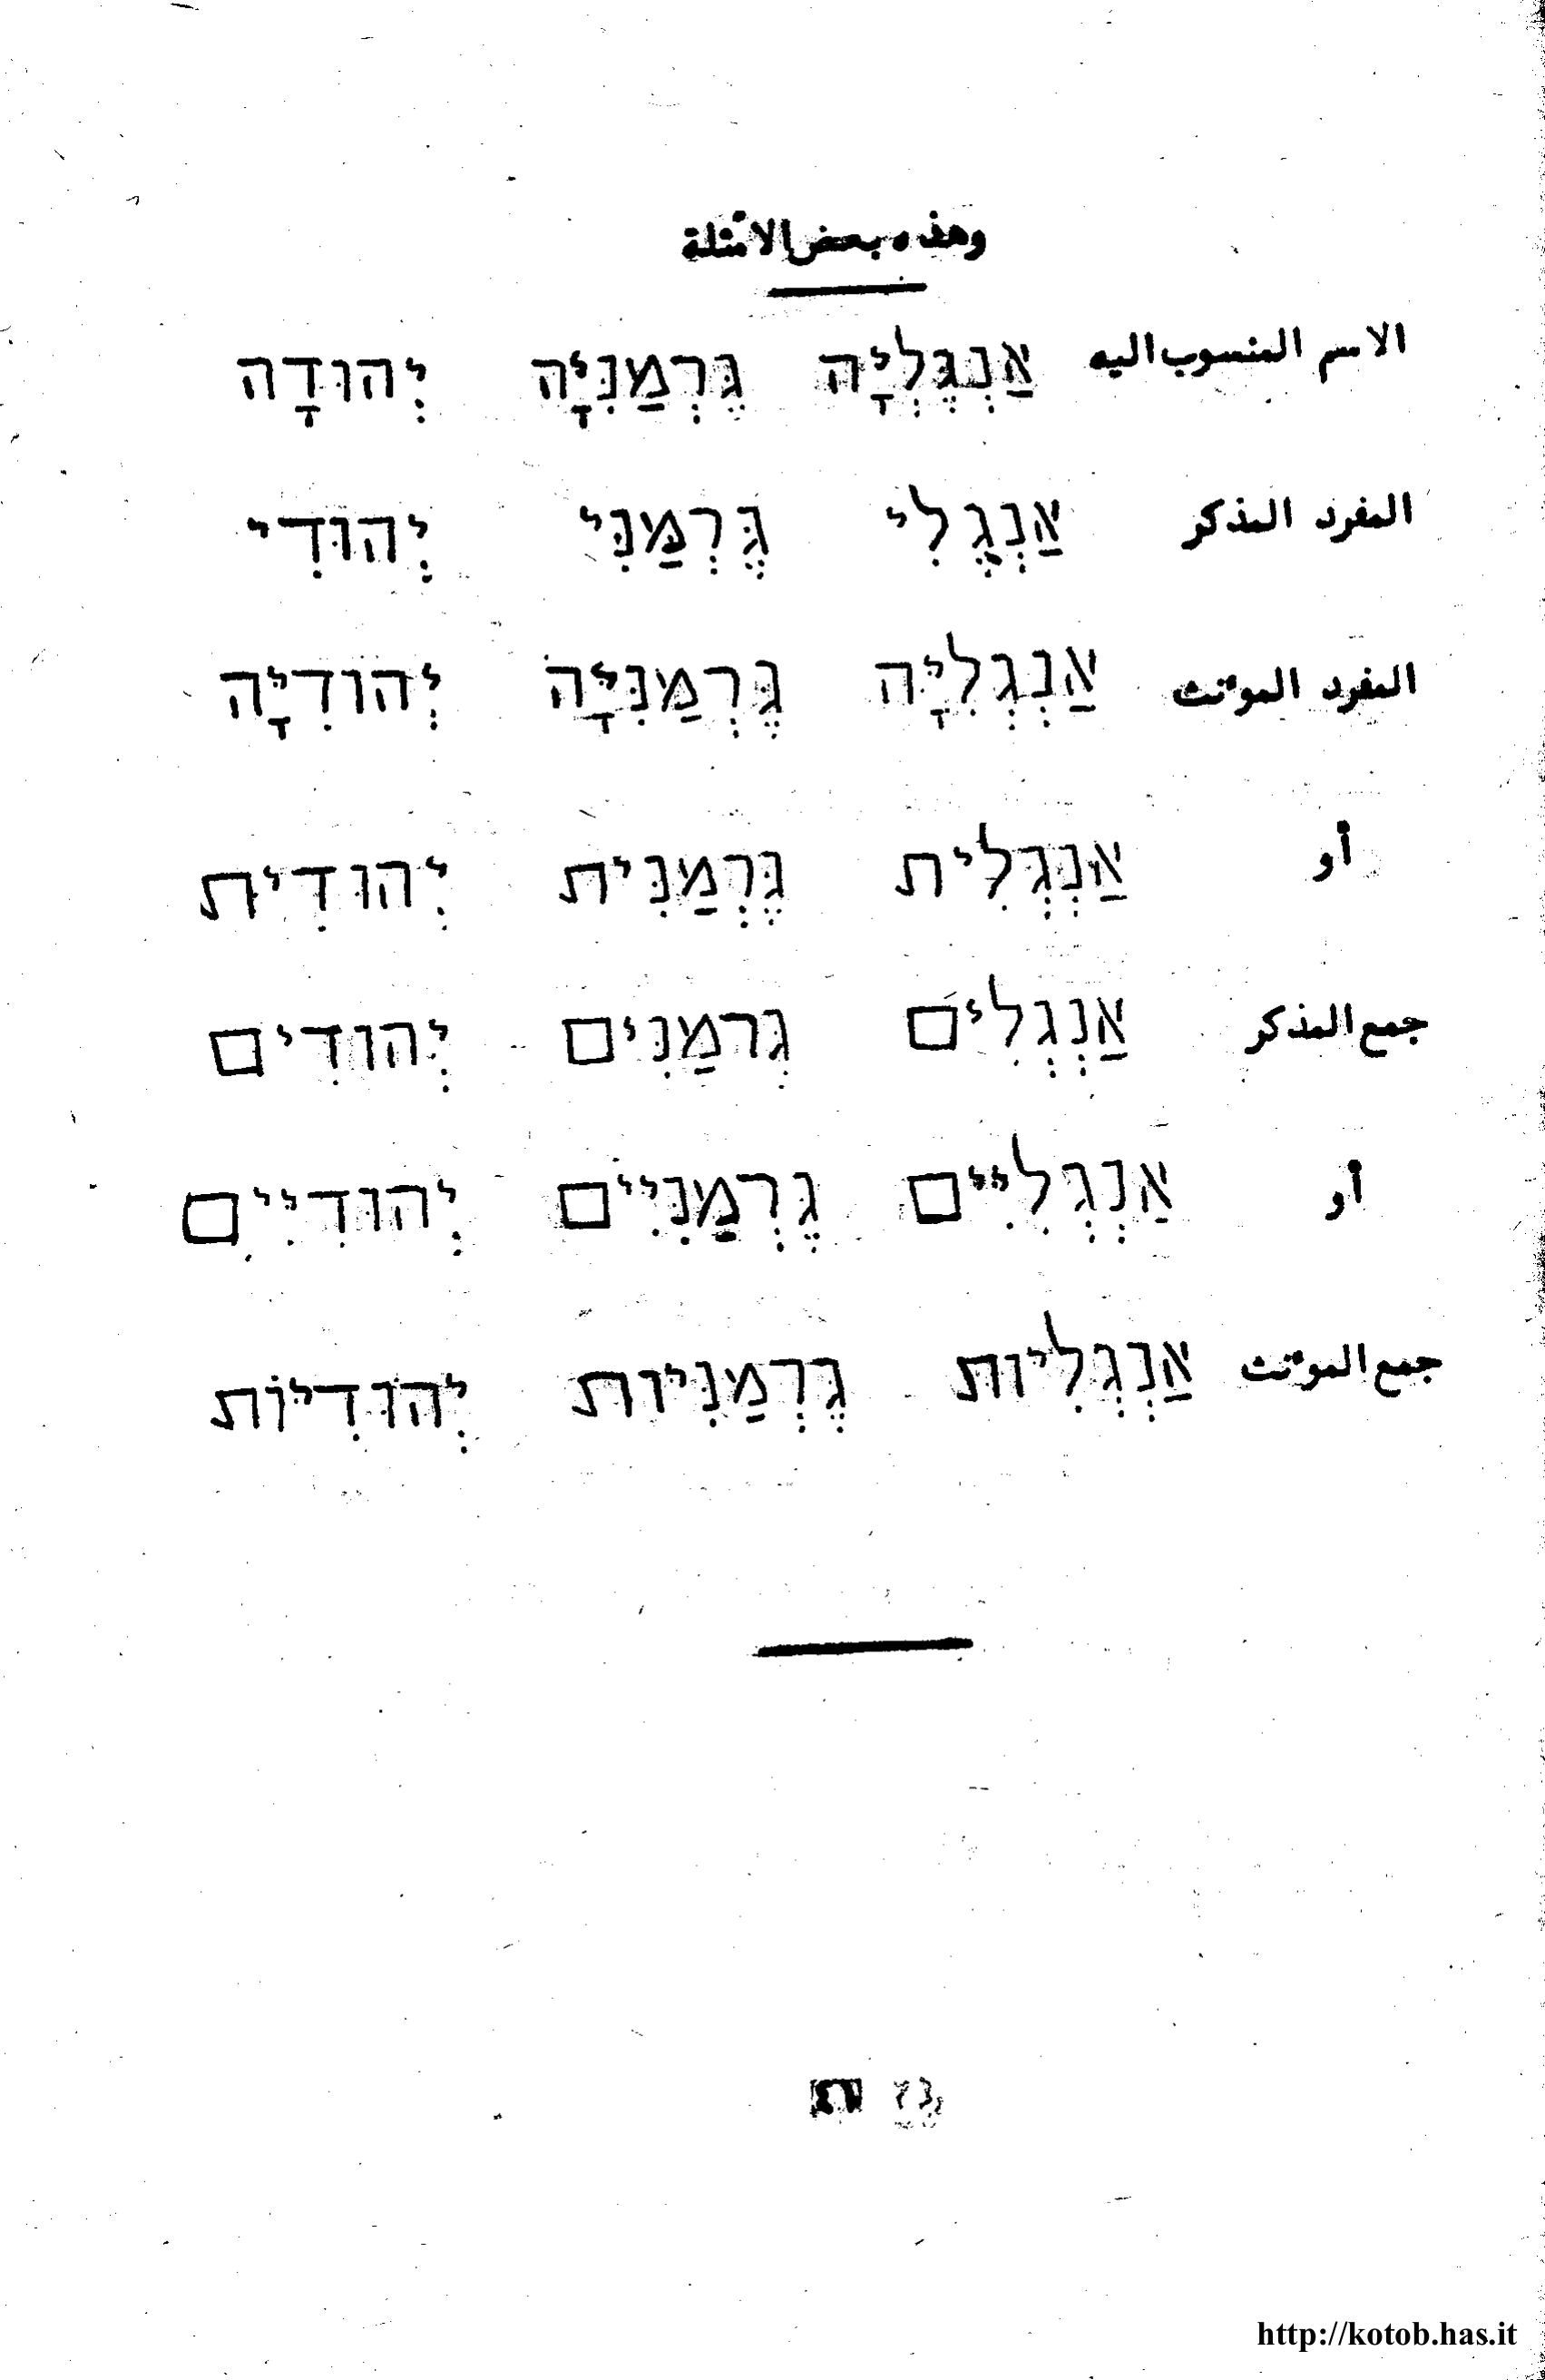 وهذه بعض الأمثلة
الاسم المنسوب اليه אַנְגֶּלְיָּה גֶּרְמַנִּיָּה יְהוּדָה
المفرد المذكر אַנְגֶלִי גֶּרְמַנִּי יְהוּדִי
المفرد المؤنث אַנְגְלִיָּה גֶּרְמַנִּיָּה יְהוּדִיָּה
أو אַנְגְלִית גֶּרְמַנִּית יְהוּדִית
جمع المذكر אַנְגְלִים גְּרמַנִּים יְהוּדִים
أو אַנְגְלִיִּים גֶּרְמַנִּיִּים יְהוּדִיִּים
جمع المؤنث אַנְגְלִיּוֹת גֶּרְמַנִּיּוֹת יְהוּדִיּוֹת
http://kotob.has.it